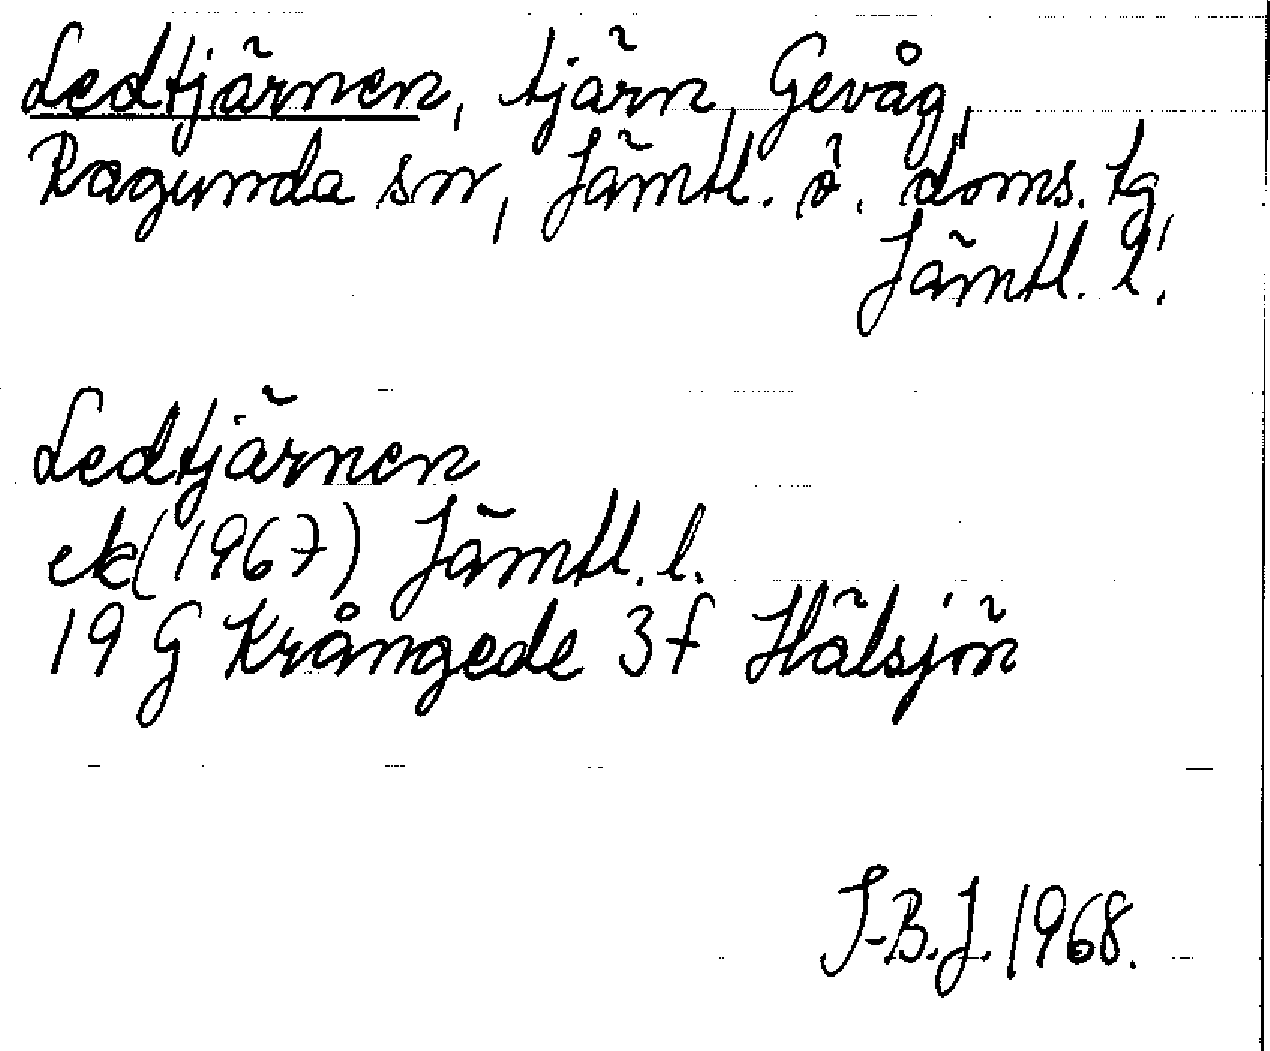 Ledtjärnen, tjärn, Gevåg,
Ragunda sn, Jämtl. ö. doms. tg,
Jämtl. l.
Ledtjärnen
ek (1967) Jämtl. l.
19 G Krångede 3 f Hälsjön
I-B.J. 1968.